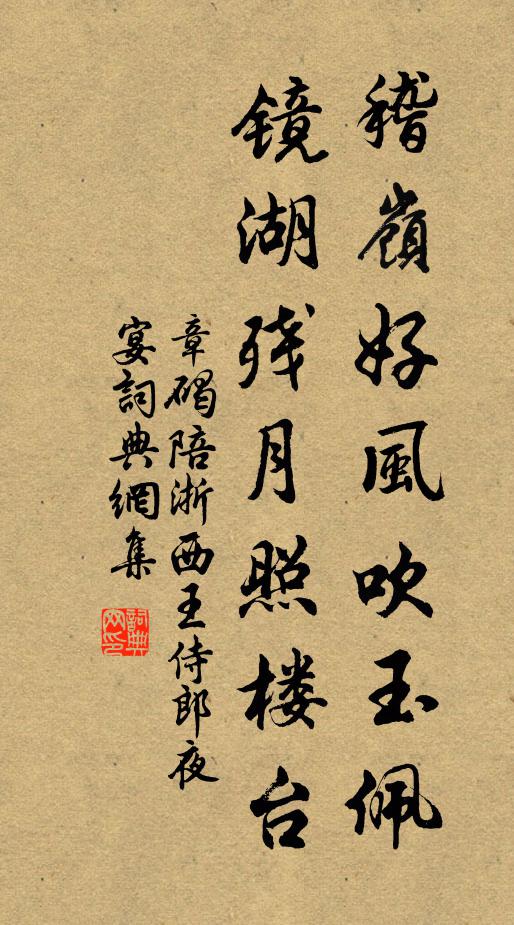 稽嶺好風吹玉佩
镜湖残月照楼台
章碣陪浙西王侍郎夜
宴詞典網集
詞典
网印